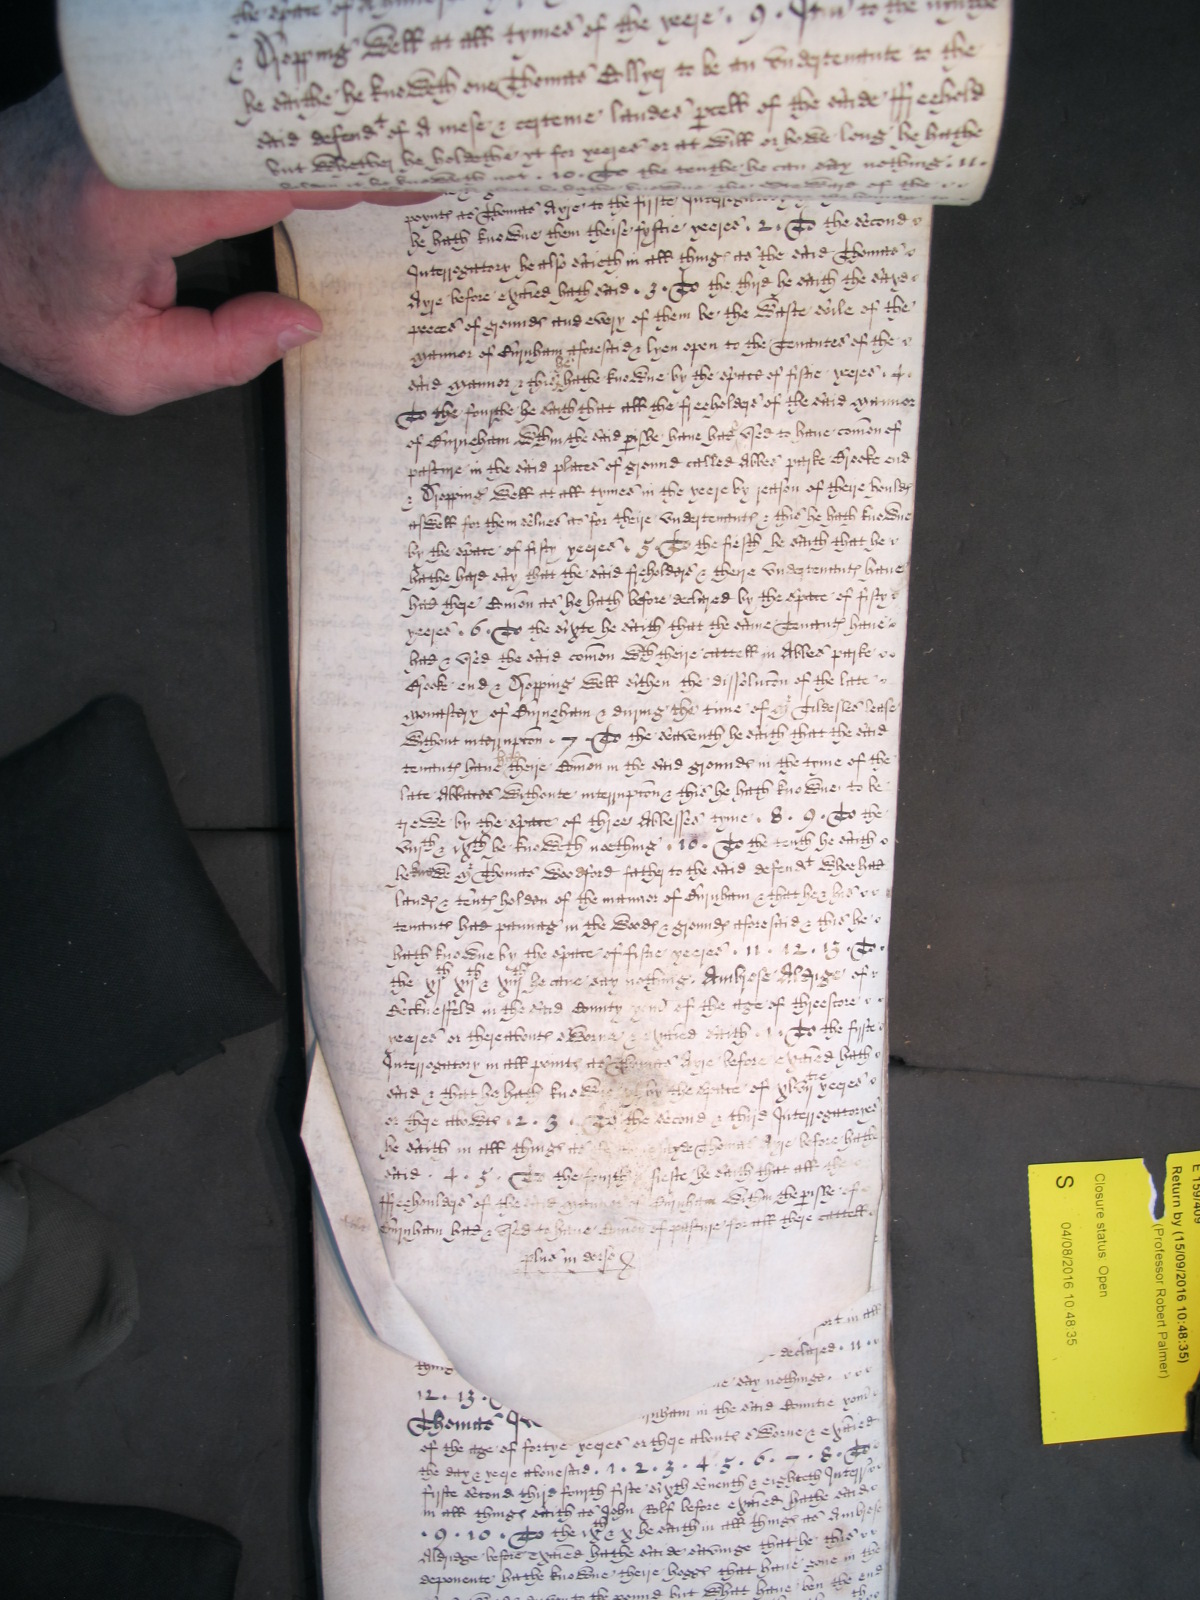 the space of
& Dropping Well at all tymes of the yeere . 9 . Item to the nynthe
he saithe he knoweth one Thomas Collyer to be an undertenante to the
said defendt of A mese & certeine landes pcell of the saide ffreehold
but Whether he holdethe yt for yeeres or at Will or howe long he hathe
not . 10 . To the tenthe he can say nothing . 11 .
poynts as Thomas Ayre to the firste Interrogatory
he hath knowne them theise fyftie yeeres . 2 . To the second
Interrogatory he also saieth in all things as the said Thomas
Ayre before exaied hath said . 3 . To the third he saith the sayd
peeces of grounds and every of them be the Waste soile of the
mannor of Burnham aforesaid & lyen open to the Tenantes of the
said mannor & this he hathe knowne by the space of fiftie yeeres . 4 .
To the fourthe he saith that all the freeholders of the said mannor
of Burneham Wthin the said pishe have had & used to have comon of
pasture in the said places of ground called Abbes parke Crooke end
& Dropping Well at all tymes in the yeere by reason of theire houlds
aswell for them selves as for theire undertenants & this he hath knowne
by the space of fifty yeeres . 5 . To the fiefth he saith that he
hathe hard say that the said freholders & theire undertenants have
had there Comon as he hath before declared by the space of fifty
yeeres . 6 . To the sixte he saith that the same Tenants have
had & used the said comon Wth theire cattell in Abbes parke
Crooke end & Dropping Well sithen the dissolucon of the late
monastery of Burneham & during the time of Mr Tildesles lease
Without interrupcon . 7 . To the seaventh he saith that the said
tenants have had theire Comon in the said grounds in the tyme of the
late Abbasses Withoute interrupcon & this he hath knowne to be
trewe by the space of three Abbesses tyme . 8 . 9 . To the
viiith & ixth he knoweth noething . 10 . To the tenth he saith
he knewe Mr Thomas Woodford father to the said defendt Whoe had
lands & tents holden of the mannor of Burnham & that he & his
tenants had pannag in the Woods & grounds aforesaid & this he
hath knowne by the space of fiftie yeeres . 11 . 12 . 13 . To
the xith xiith & xiiith he cane say nothing . Ambrose Aldrige of
Beckensfeld in the said County yom of the age of threescore
yeeres or thereabouts sworne & exaied saith . 1 . To the firste
Interrogatory in all points as Thomas Ayre before exaied hath
said & that he hath knowne by the space of yeeres
or there abowts . 2 . 3 . To the second & third Interrogatoryes
he saith in all things as Thomas Ayre before hathe
said . 4 . 5 . To the fourth & fiefte he saith that all the
ffreehoulders of the said mannor of Burnham Wthin the pishe of
Burnham had & used to have Comon of pasture for all there cattell
plus in dorso
in all
thing declared . 11 .
12 . 13 . say nothinge .
Thomas Burnham in the said Countie yom
of the age of fortye yeeres or there abouts sworne & exaied
the day & yeere abovesaid . 1 . 2 . 3 . 4 . 5 . 6 . 7 . 8 . To
firste second third fourth fifte sixth seventh & eighteth Interr
in all things saith as John Rolf before exaied hathe said
. 9 . 10 . To the ixth & x he saith in all things as Ambrose
Aldridge before exaied hathe saide savinge that he this
deponente hathe knowne theire hoggs that have gone in the
to the pound but What have ben the end
E 159/409
Return by (15/09/2016 10:48:35)
(Professor Robert Palmer)
Closure status Open
S 04/08/2016 10:48:35